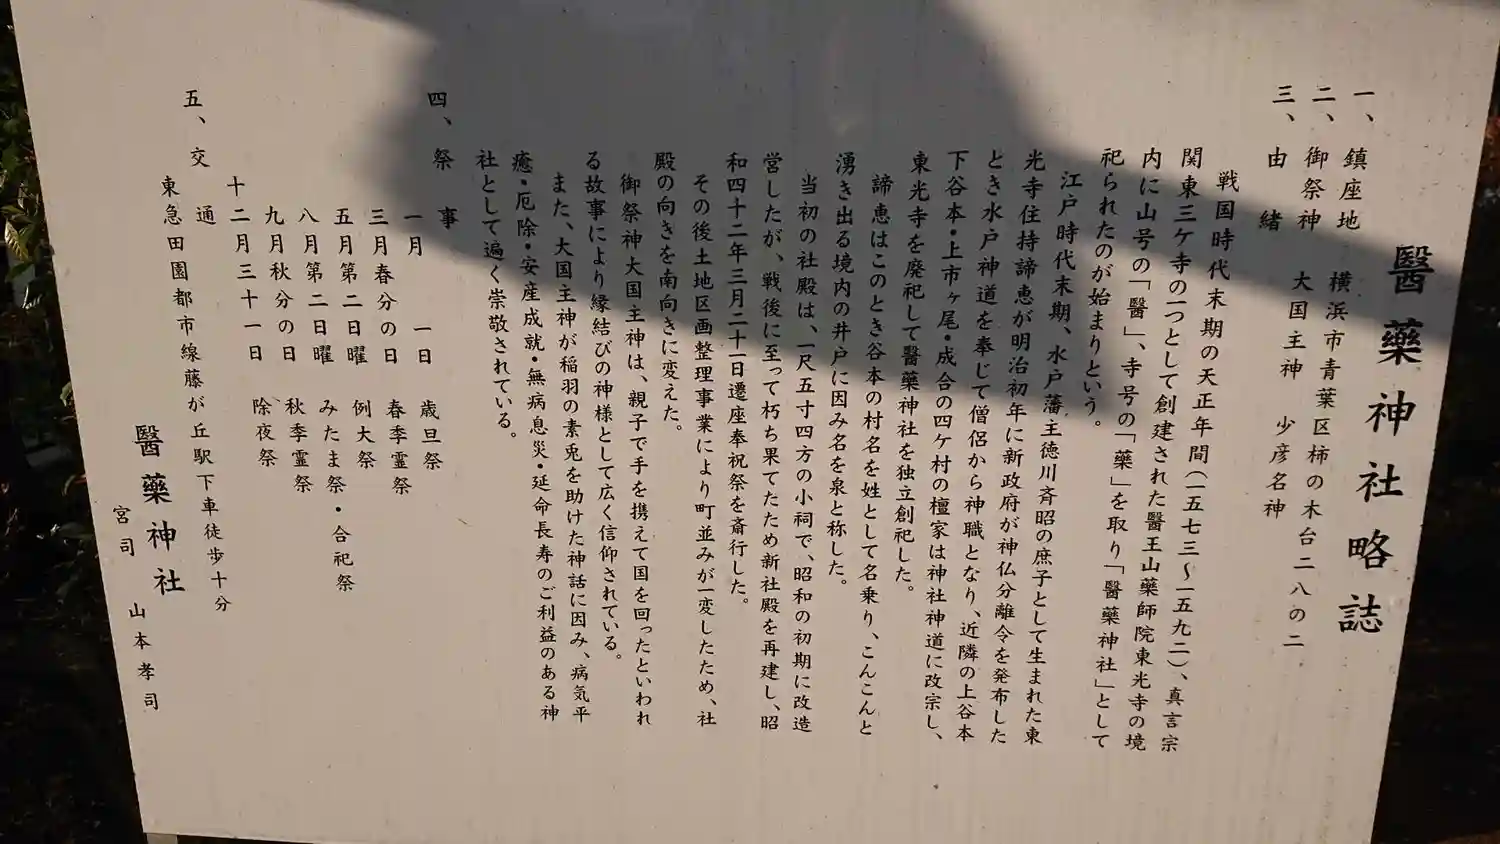 醫藥神社略誌
一、鎮座地 横浜市青葉区柿の木台二八の二
二、御祭神 大国主神 少彦名神
三、由緒
戦国時代末期の天正年間(一五七三～一五九二)、真言宗
関東三ケ寺の一つとして創建された醫王山藥師院東光寺の境
内に山号の「醫」、寺号の「藥」を取り「醫藥神社」として
祀られたのが始まりという。
江戸時代末期、水戸藩主徳川斉昭の庶子として生まれた東
光寺住持諦恵が明治初年に新政府が神仏分離令を発布した
とき水戸神道を奉じて僧侶から神職となり、近隣の上谷本
下谷本・上市ヶ尾・成合の四ケ村の檀家は神社神道に改宗し、
東光寺を廃祀して醫藥神社を独立創祀した。
諦恵はこのとき谷本の村名を姓として名乗り、こんこんと
湧き出る境内の井戸に因み名を泉と称した。
当初の社殿は、一尺五寸四方の小祠で、昭和の初期に改造
営したが、戦後に至って朽ち果てたため新社殿を再建し、昭
和四十二年三月二十一日遷座奉祝祭を斎行した。
その後土地区画整理事業により町並みが一変したため、社
殿の向きを南向きに変えた。
御祭神大国主神は、親子で手を携えて国を回ったといわれ
る故事により縁結びの神様として広く信仰されている。
また、大国主神が稲羽の素兎を助けた神話に因み、病気平
癒・厄除・安産成就・無病息災・延命長寿のご利益のある神
社として遍く崇敬されている。
四、祭事
一月 一日 歳旦祭
三月春分の日 春季霊祭
五月第二日曜 例大祭
八月第二日曜 みたま祭・合祀祭
九月秋分の日 秋季霊祭
十二月三十一日 除夜祭
五、交通
東急田園都市線藤が丘駅下車徒歩十分
醫藥神社
宮司 山本孝司